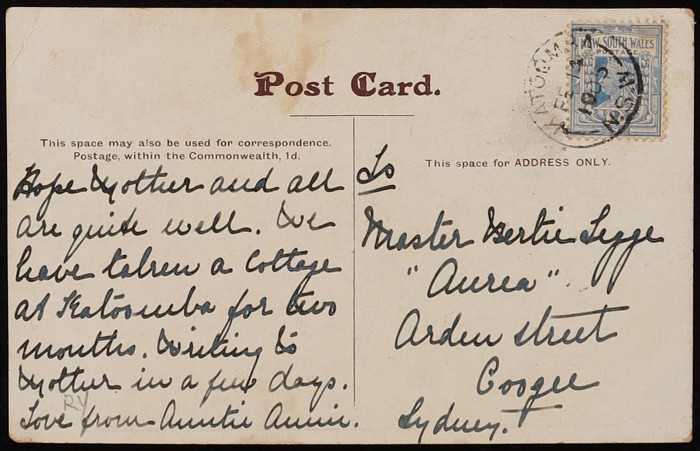 Post Card.
NEW SOUTH WALES
POSTAGE
KATOOMBA
N.S.W
This space may also be used for correspondence.
Postage, within the Commonwealth, 1d.
Hope Mother and all
are quite well. We
have taken a Cottage
at Katoomba for two
months. Writing to
Mother in a few days.
Love from Auntie Annie.
This space for ADDRESS ONLY.
To
Master Bertie Legge
"Aurea"
Arden street
Coogee
Sydney.